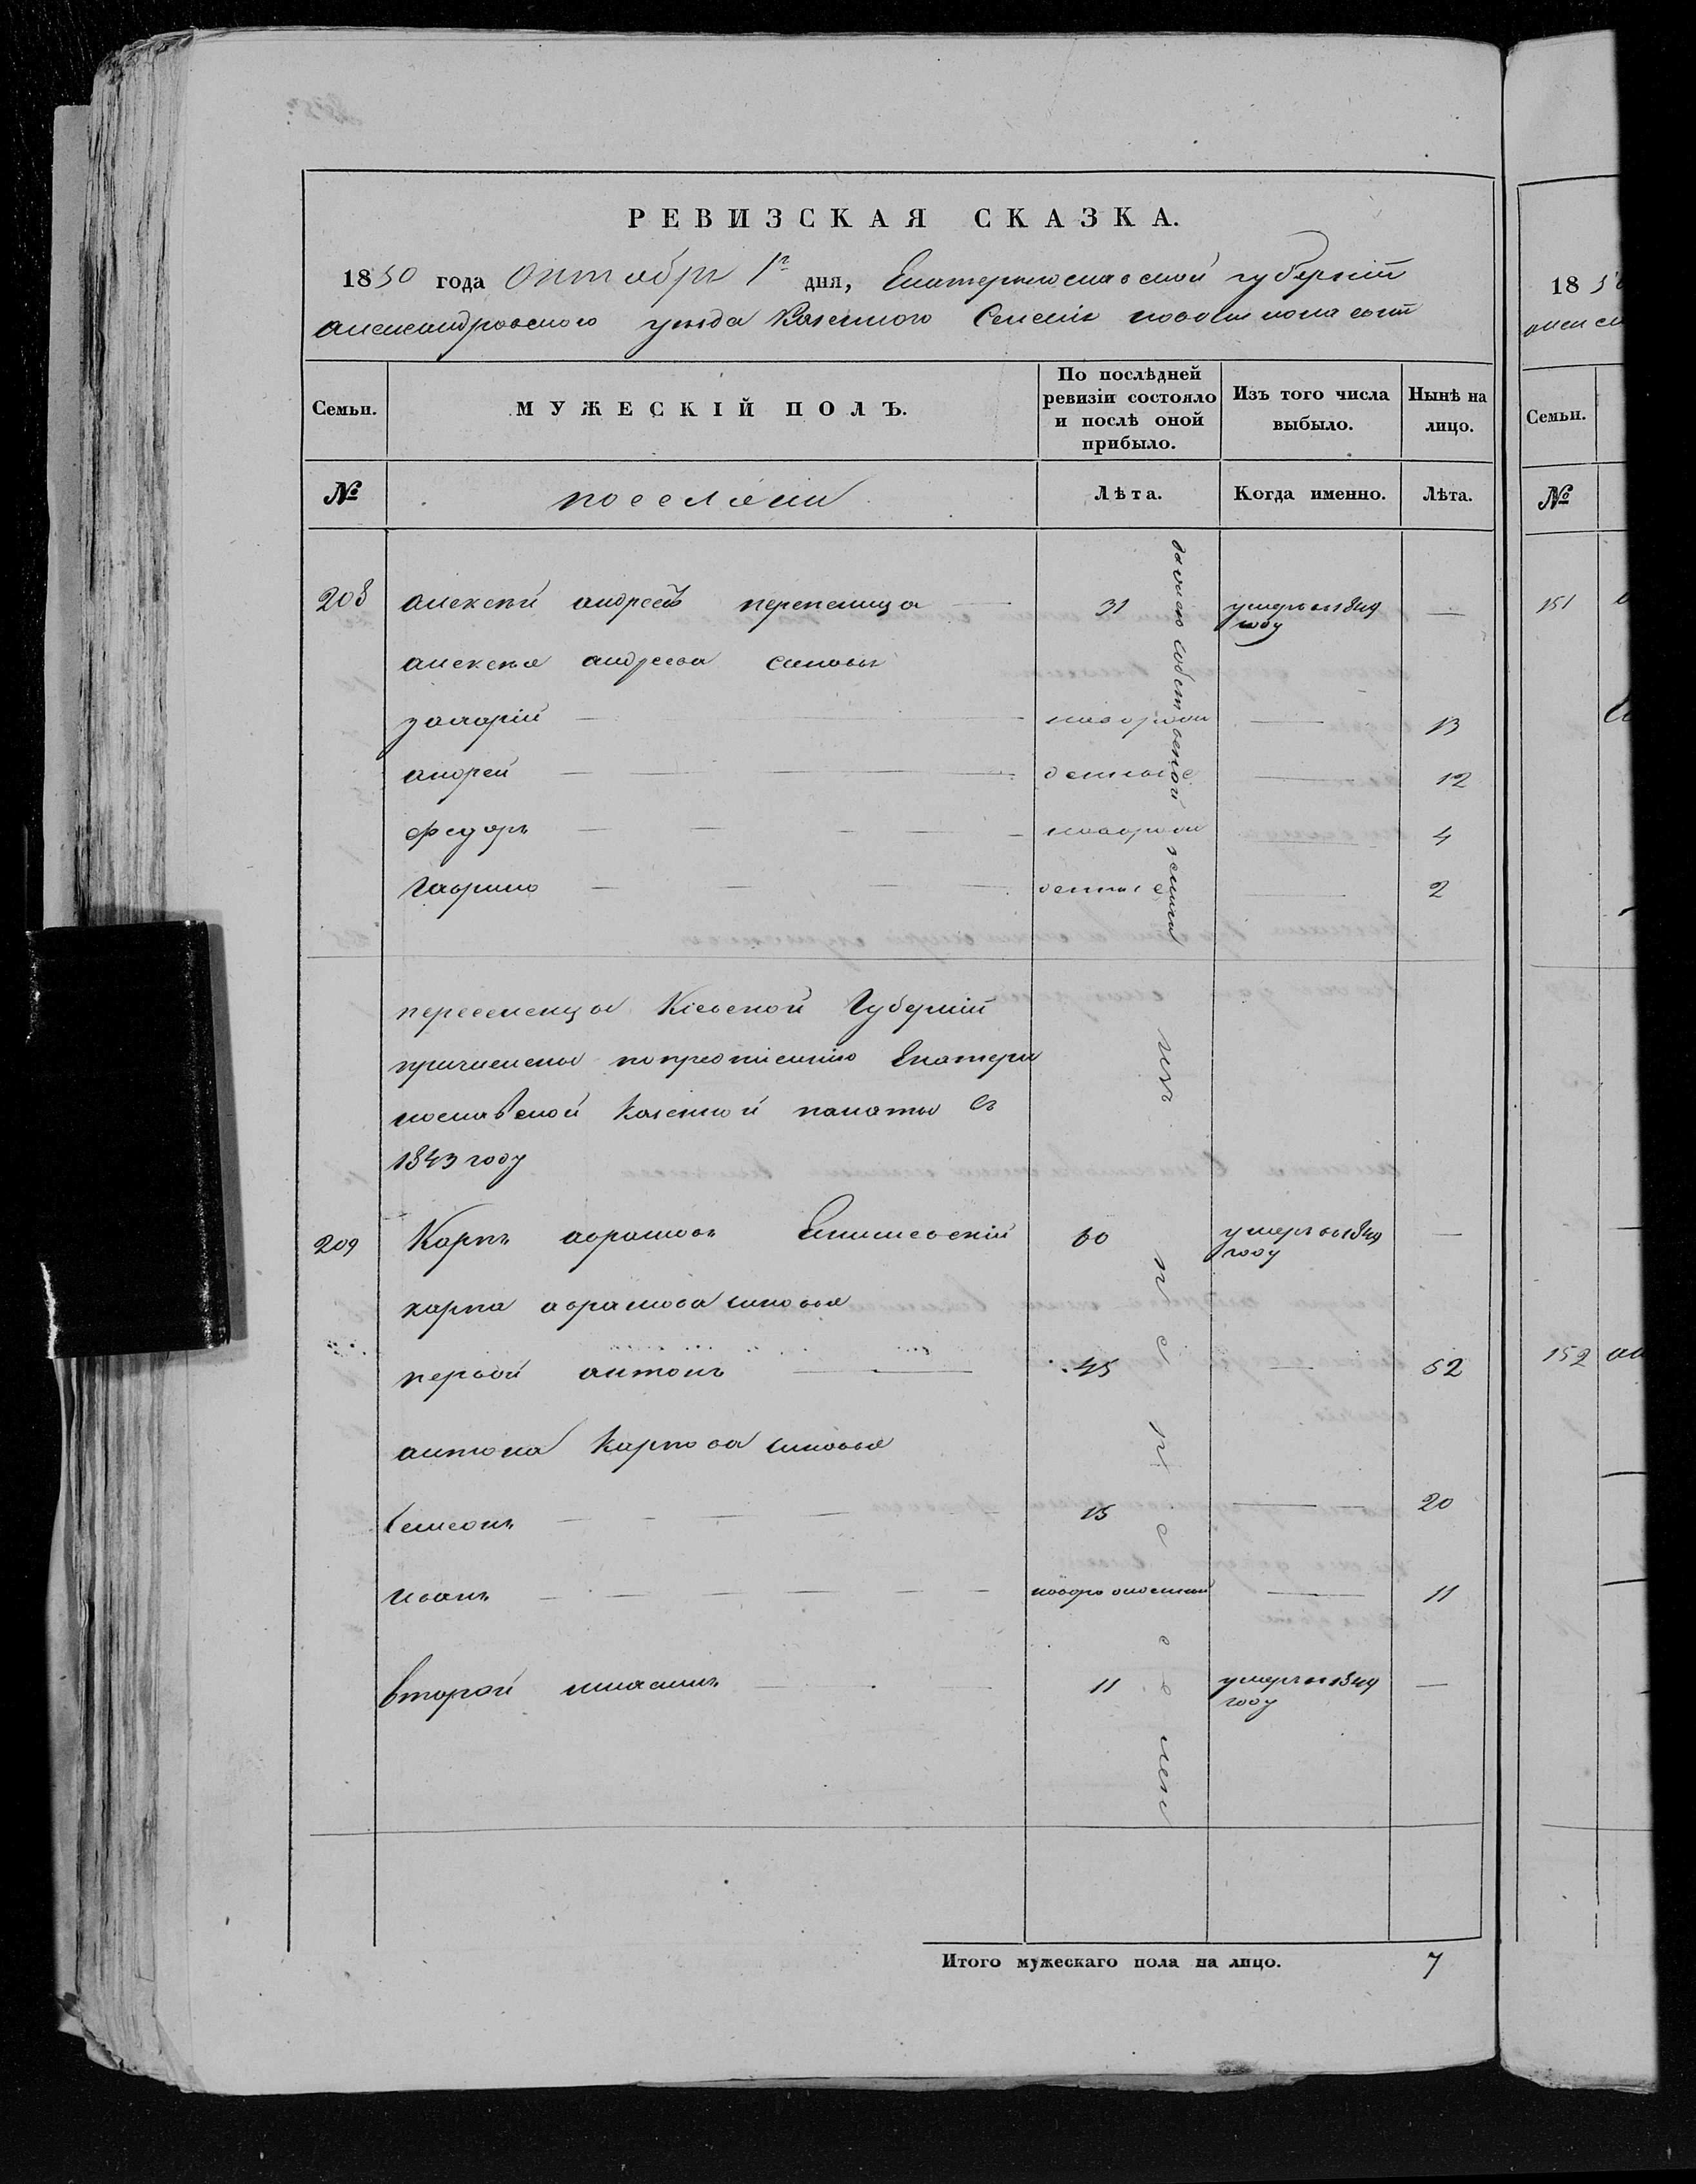 РЕВИЗСКАЯ СКАЗКА.
1850 года Октября 1го дня, Екатеринославской губерніи
александровского уезда Казенного Селенія новониколаевки
Семьи.
МУЖЕСКІЙ ПОЛЪ.
По послѣдней ревизіи состояло и послѣ оной прибыло.
Изъ того числа выбыло.
Нынѣ на лицо.
№
поселяни
Лѣта.
Когда именно.
Лѣта.
208 алексѣй андреевъ перепелица — 31 умеръ въ 1849 году —
алексѣя андреева синовья
захарій — новорож — 13
андрей — денные — 12
федоръ — новорож — 4
гаврило — денные — 2
собственной земли
переселенцы Кіевской Губерніи
причислены по предписанію Екатери
нославской Казенной палаты въ
1843 году
209 Карпъ аврамовъ 60 умеръ въ 1849 году —
карпа аврамова синовья
первой антонъ — 45 — 52
антона Карпова синовья
Семеонъ — 15 — 20
иванъ — новорожденный — 11
второй — 11 умеръ въ 1849 году —
изъ переселен
Итого мужескаго пола на лицо. 7
18 50
Семьи.
№
151
152